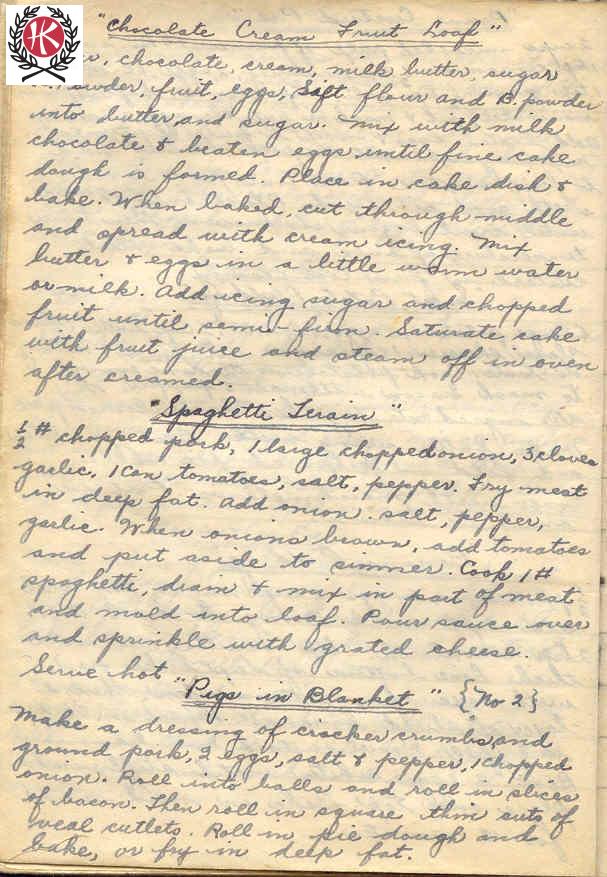 "Chocolate Cream Fruit Loaf"
chocolate, cream, milk butter, sugar
powder, fruit, eggs, Sift flour and B. powder
into butter and sugar. Mix with milk
chocolate & beaten eggs until fine cake
dough is formed. Place in cake dish &
bake. When baked, cut through middle
and spread with cream icing. Mix
butter & eggs in a little warm water
or milk. Add icing sugar and chopped
fruit until semi-firm. Saturate cake
with fruit juice and steam off in oven
after creamed.
"Spaghetti Terain"
½ # chopped pork, 1 large chopped onion, 3 cloves
garlic, 1 can tomatoes, salt, pepper. Fry meat
in deep fat. Add onion. salt, pepper,
garlic. When onions brown, add tomatoes
and put aside to simmer. Cook 1 #
spaghetti, drain & mix in part of meat
and mold into loaf. Pour sauce over
and sprinkle with grated cheese.
Serve hot
"Pigs in Blanket" {No 2}
Make a dressing of cracker crumbs, and
ground pork, 2 eggs, salt & pepper, 1 chopped
onion. Roll into balls and roll in slices
of bacon. Then roll in square thin cuts of
veal cutlets. Roll in pie dough and
bake, or fry in deep fat.